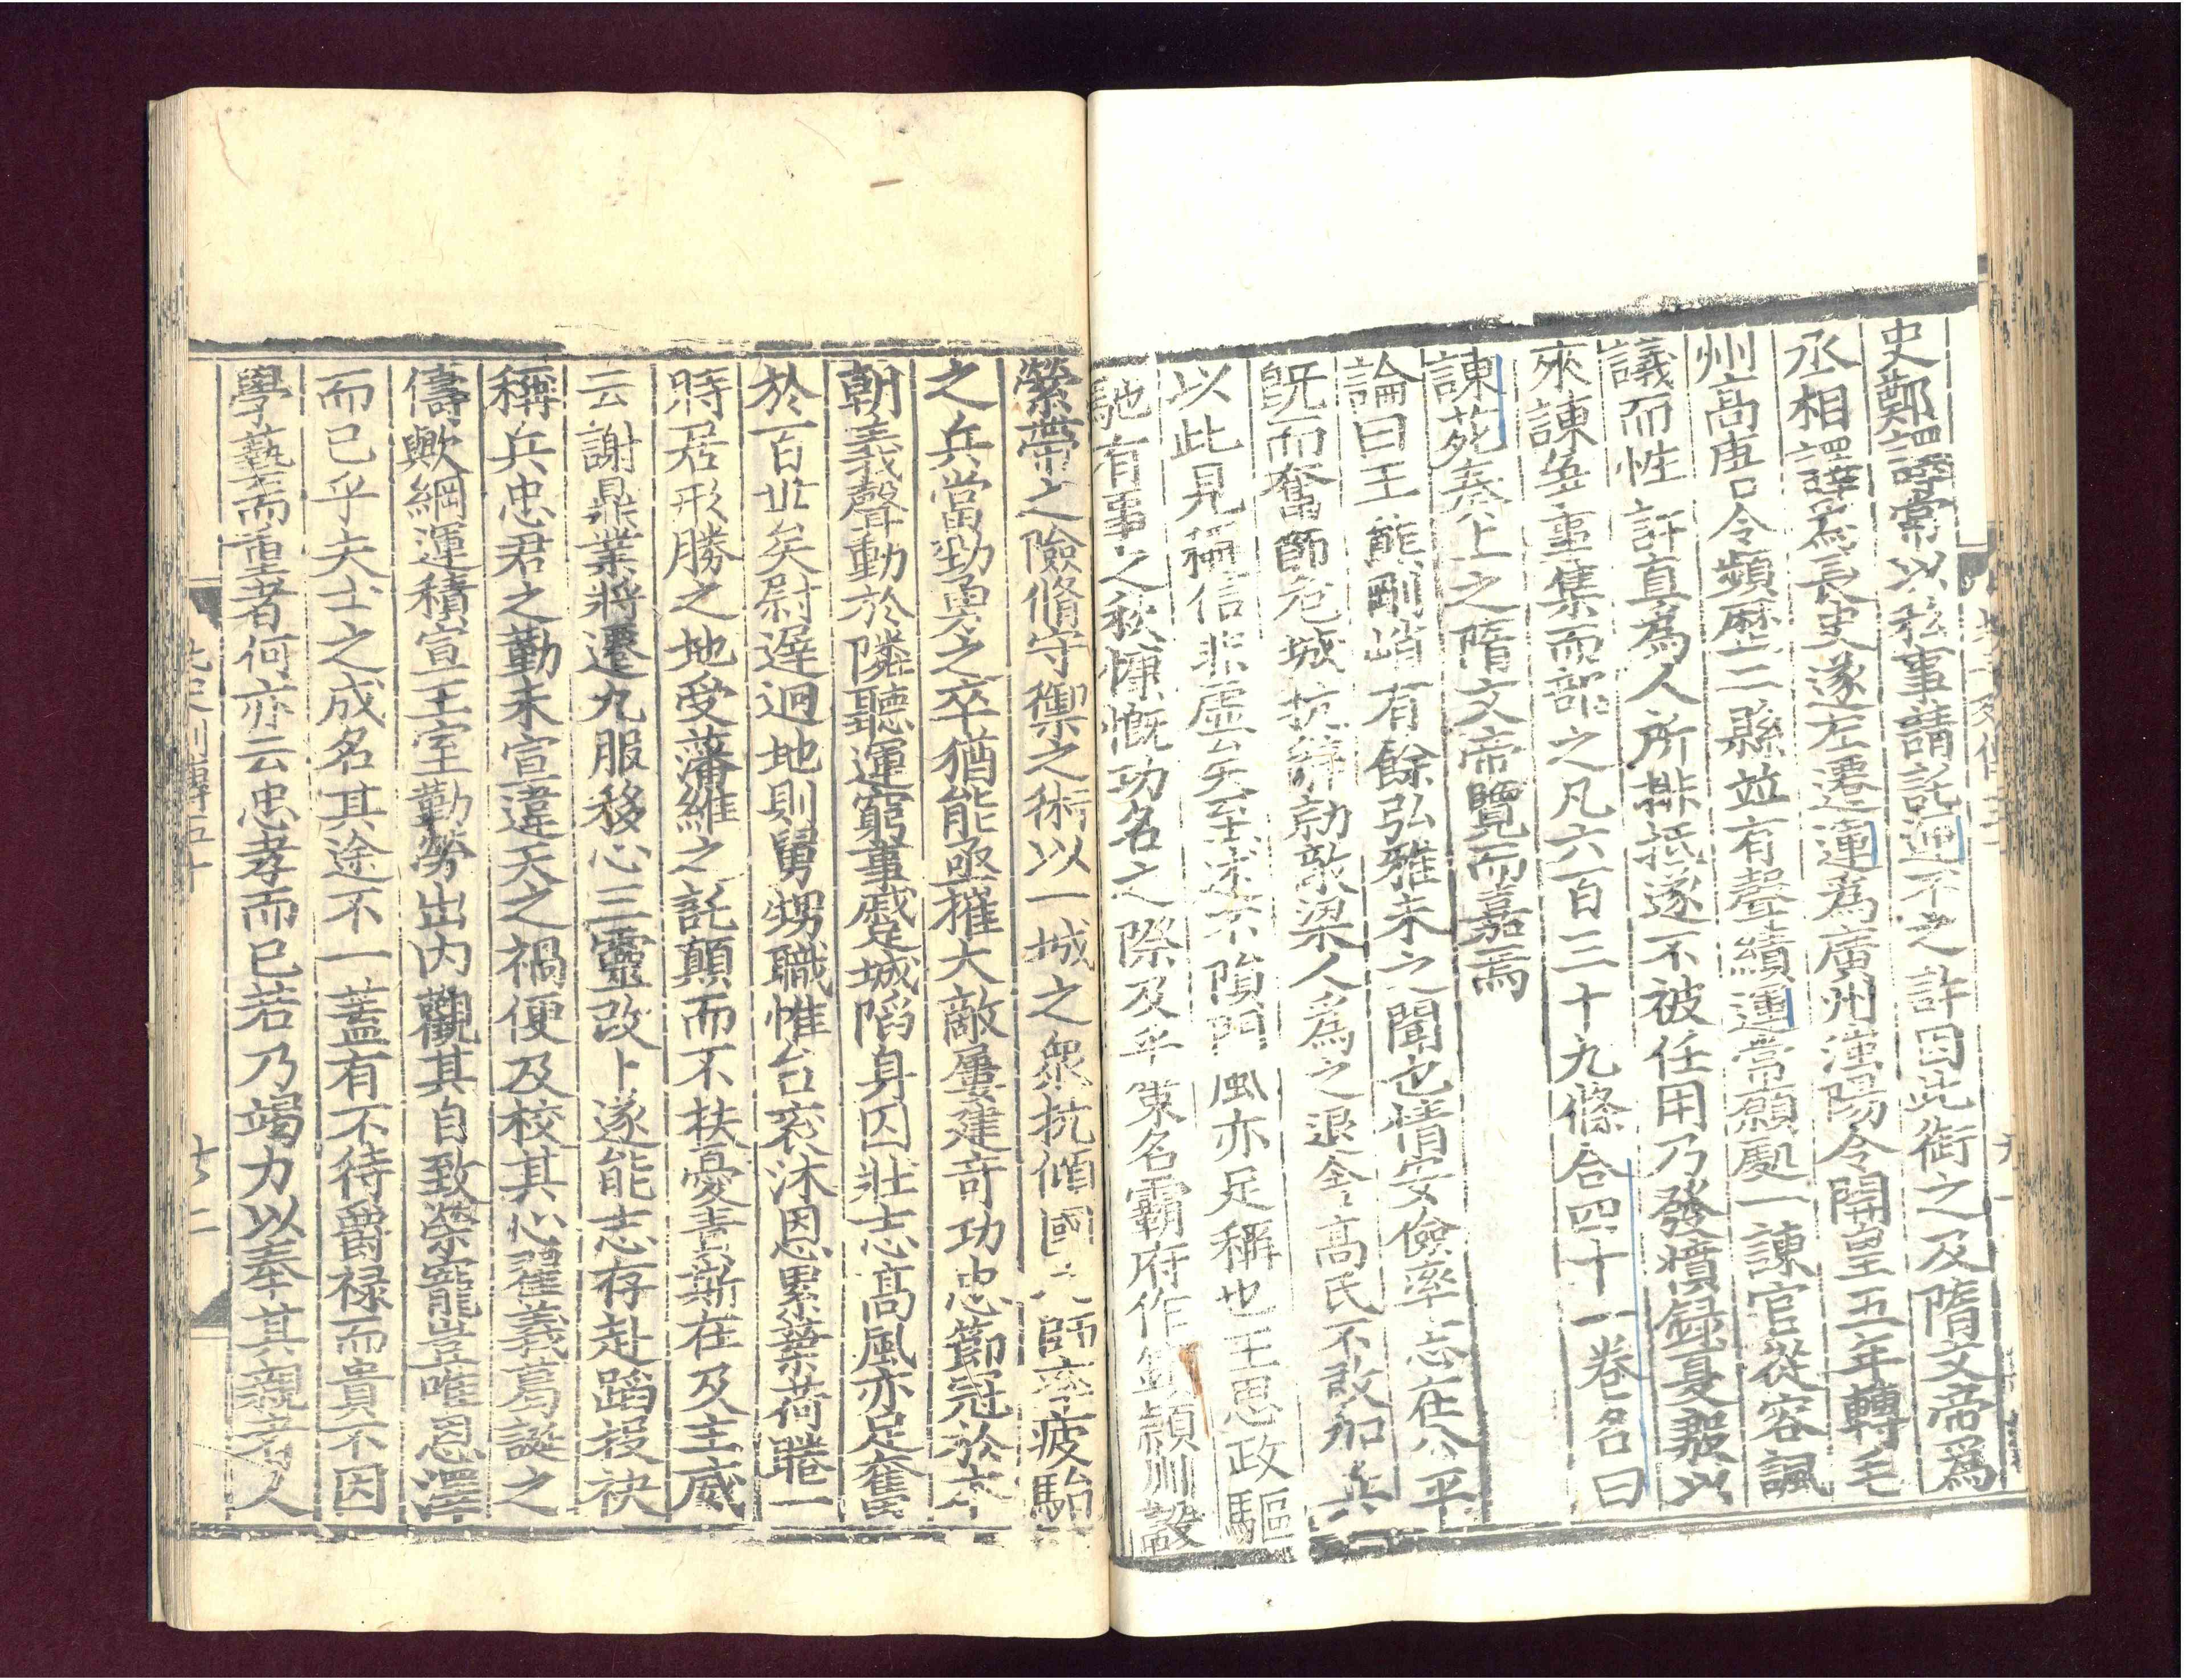 史鄭譯常以私事請託迥不之許因此銜之及隋文帝爲
丞相譯爲長史遂左遷運爲廣州滍陽令開皇五年轉毛
州高唐令頻歷二縣並有聲績運常願處一諫官從容諷
議而性訐直爲人所排抵遂不被任用乃發憤録夏殷以
來諫爭事集而部之凡六百三十九條合四十一卷名曰
諫苑奏上之隋文帝覽而嘉焉
論曰王熊剛峭有餘弘雅未之聞也情安儉率志在公平
旣而奮節危城抗辭勍敵梁人爲之退舍高氏不敢加兵
以此見稱信非虛矣至述不隕門風亦足稱也王思政驅
馳有事之秋慷慨功名之際及乎策名霸府作鎮潁川設
縈帶之險脩守禦之術以一城之衆抗傾國之師率疲駘
之兵當勁勇之卒猶能亟摧大敵屢建竒功忠節冠於本
朝義聲動於隣聽運窮事蹙城陷身囚壯志高風亦足奮
於百世矣尉遲迥地則舅甥職惟台衮沐恩累葉荷睠一
時居形勝之地受藩維之託顛而不扶憂責斯在及主威
云謝鼎業將遷九服移心三靈改卜遂能志存赴蹈投袂
稱兵忠君之勤未宣違天之禍便及校其心翟義葛誕之
儔歟綱運積宣王室勤勞出内觀其自致榮寵豈唯恩澤
而已乎夫士之成名其途不一蓋有不待爵禄而貴不因
學藝而重者何亦云忠孝而已若乃竭力以奉其親者人
北史列傳五十
十二